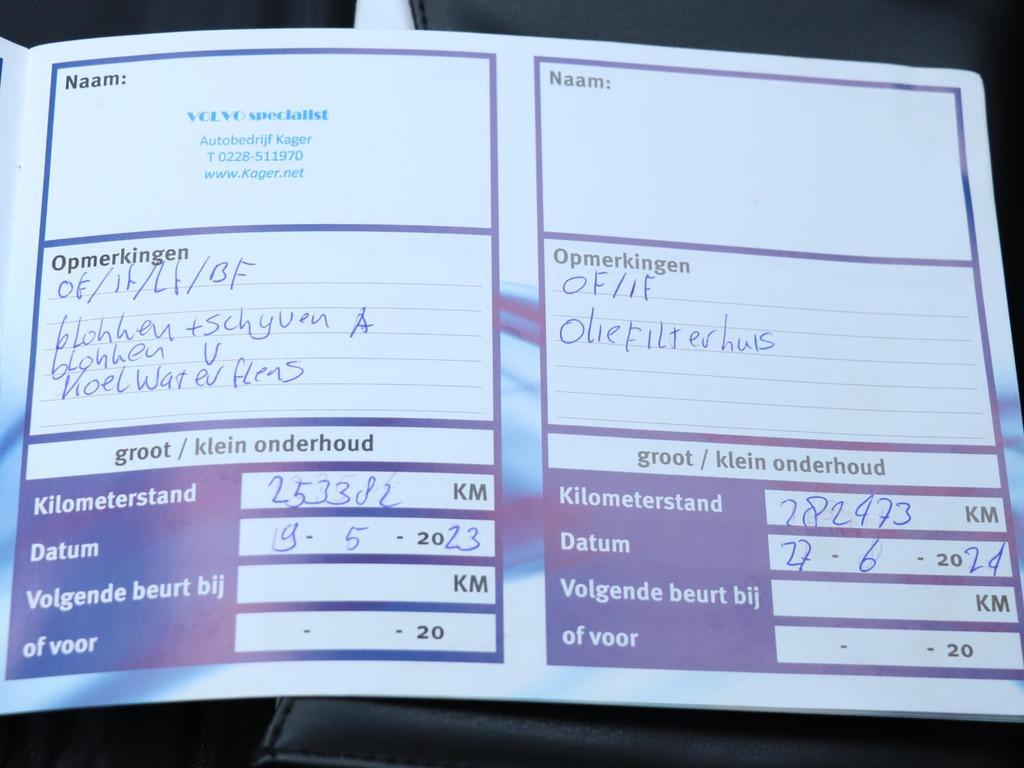 Naam:
VOLVO specialist
Autobedrijf Kager
T 0228-511970
www.Kager.net
Opmerkingen
OF/IF/LF/BF
blokken + schyven A
blokken V
Koelwater flens
groot / klein onderhoud
Kilometerstand 253382 KM
Datum 19 - 5 - 2023
Volgende beurt bij KM
of voor - - 20
Naam:
Opmerkingen
OF/IF
Oliefilterhuis
groot / klein onderhoud
Kilometerstand 282473 KM
Datum 27 - 6 - 2024
Volgende beurt bij KM
of voor - - 20